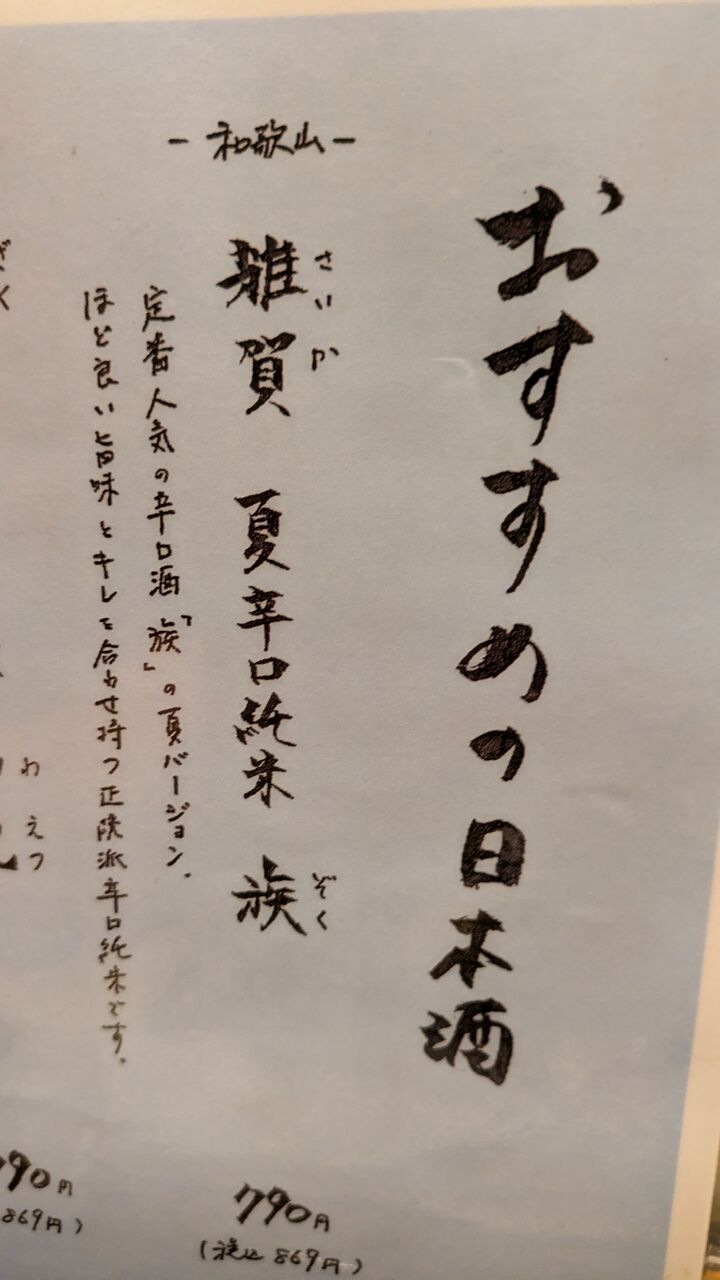 おすすめの日本酒
-和歌山-
さいか
雑賀 夏辛口純米 族
ぞく
定番人気の辛口酒「族」の夏バージョン.
ほど良い旨味とキレを合わせ持つ正統派辛口純米です.
790円
(税込 869円)
わえつ
790円
869円)